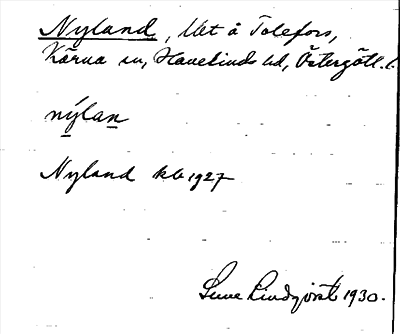 Nyland, Utt å Tolefors,
Kärna sn, Hanekinds hd, Östergötl. l.
nýlan
Nyland kb 1927
Sune Lindqvist 1930.